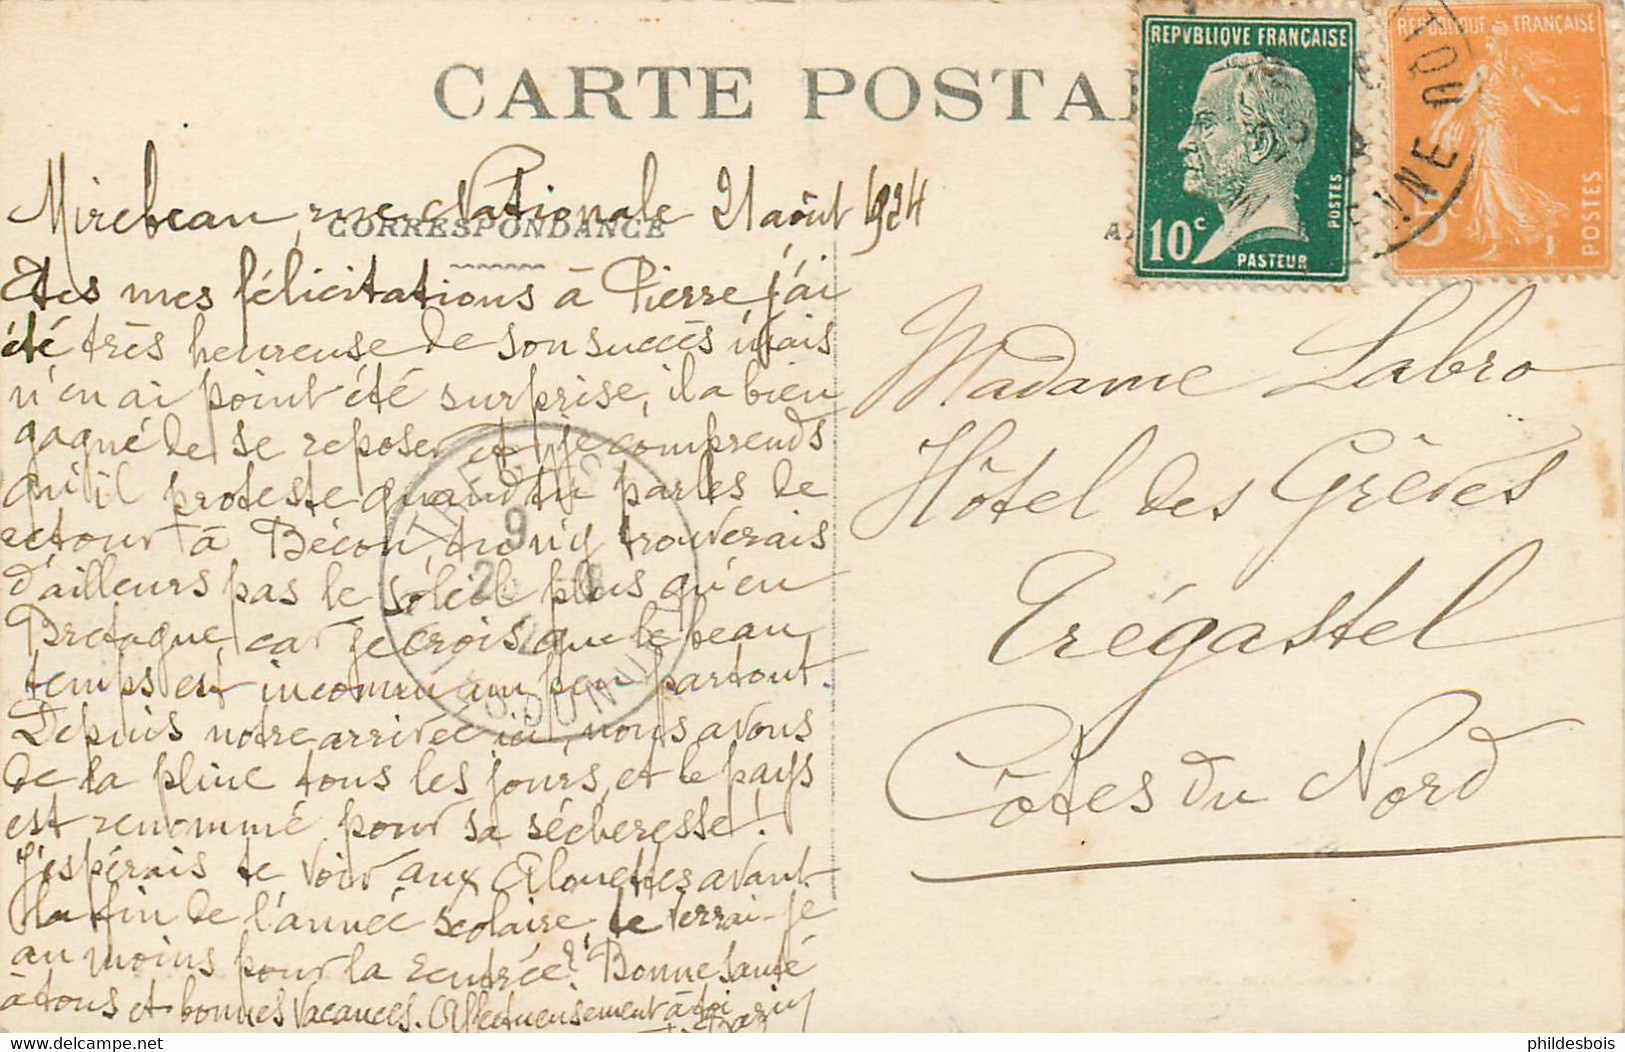 CARTE POSTAL
REPVBLIQVE FRANÇAISE
10c
POSTES
PASTEUR
REPUBLIQUE FRANÇAISE
5c
POSTES
Mirebeau, rue Nationale 21 août 1924
CORRESPONDANCE
Ttes mes félicitations à Pierre j'ai
été très heureuse de son succès mais
n'en ai point été surprise, il a bien
gagné de se reposer et je comprends
qu'il proteste quand tu parles de
retour à Bécon, tu n'y trouverais
d'ailleurs pas le soleil plus qu'en
Bretagne, car je crois que le beau
temps est inconnu un peu partout.
Depuis notre arrivée ici, nous avons
de la pluie tous les jours, et le pays
est renommé pour sa sécheresse!
J'espérais te voir aux Alouettes avant
la fin de l'année scolaire, te verrai-je
au moins pour la rentrée? Bonne santé
à tous et bonnes vacances. Affectueusement à toi
Madame Labro
Hôtel des Grèves
Trégastel
Côtes du Nord
phildesbois